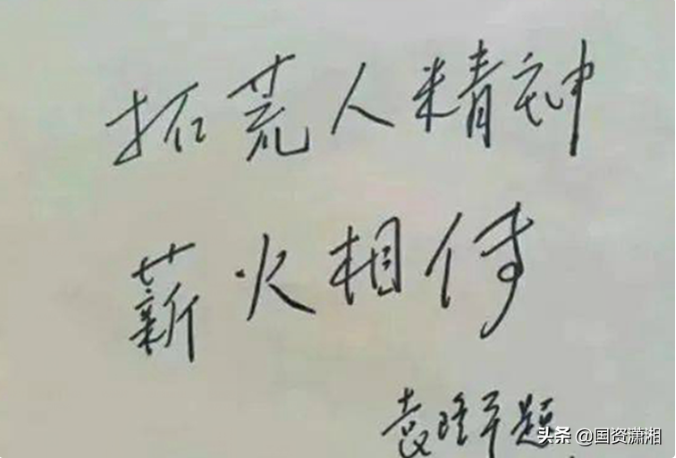 拓荒人精神
薪火相传
袁隆平题
头条 @国资潇湘